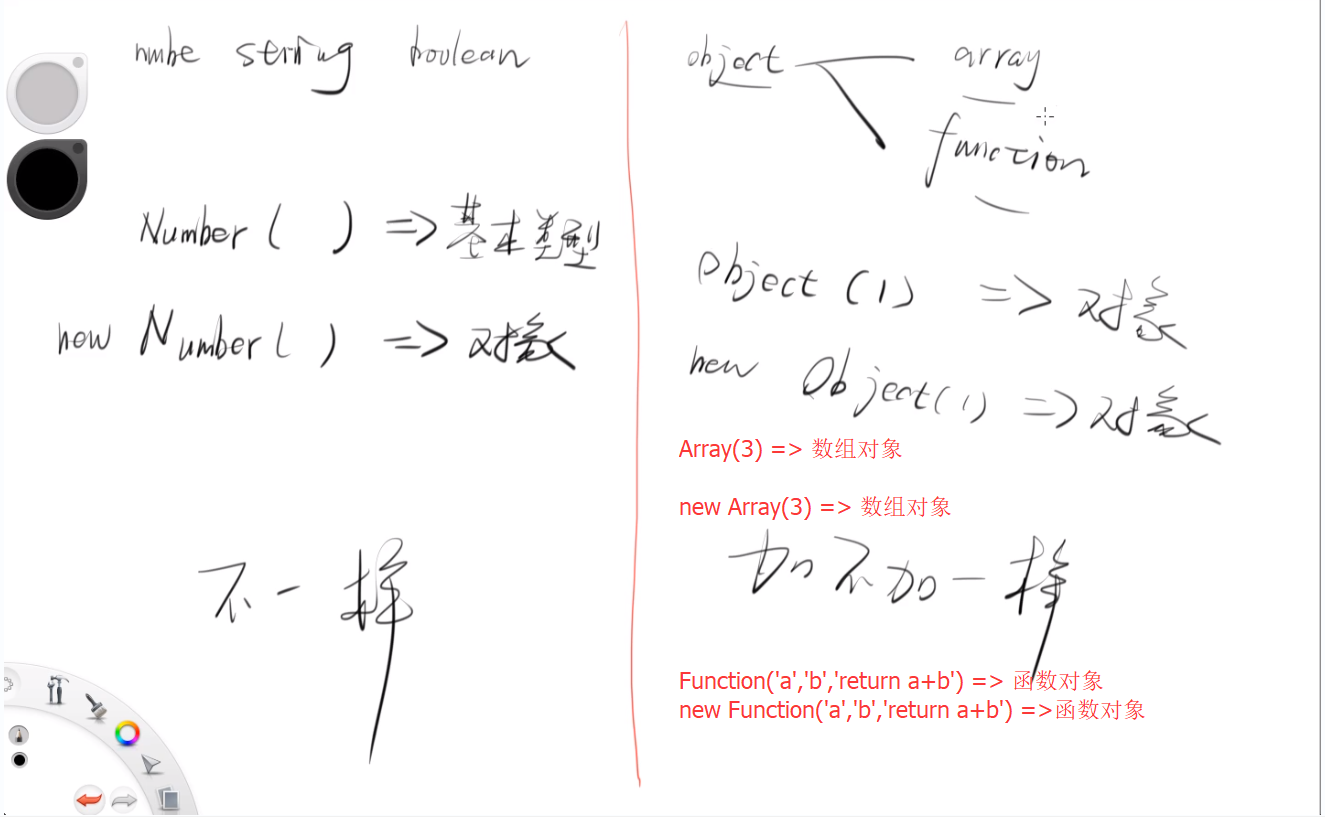 nmbe string boolean
Number( ) => 基本类型
new Number( ) => 对象
不一样
object array
function
Object (1) => 对象
new Object(1) => 对象
Array(3) => 数组对象
new Array(3) => 数组对象
加不加一样
Function('a','b','return a+b') => 函数对象
new Function('a','b','return a+b') =>函数对象